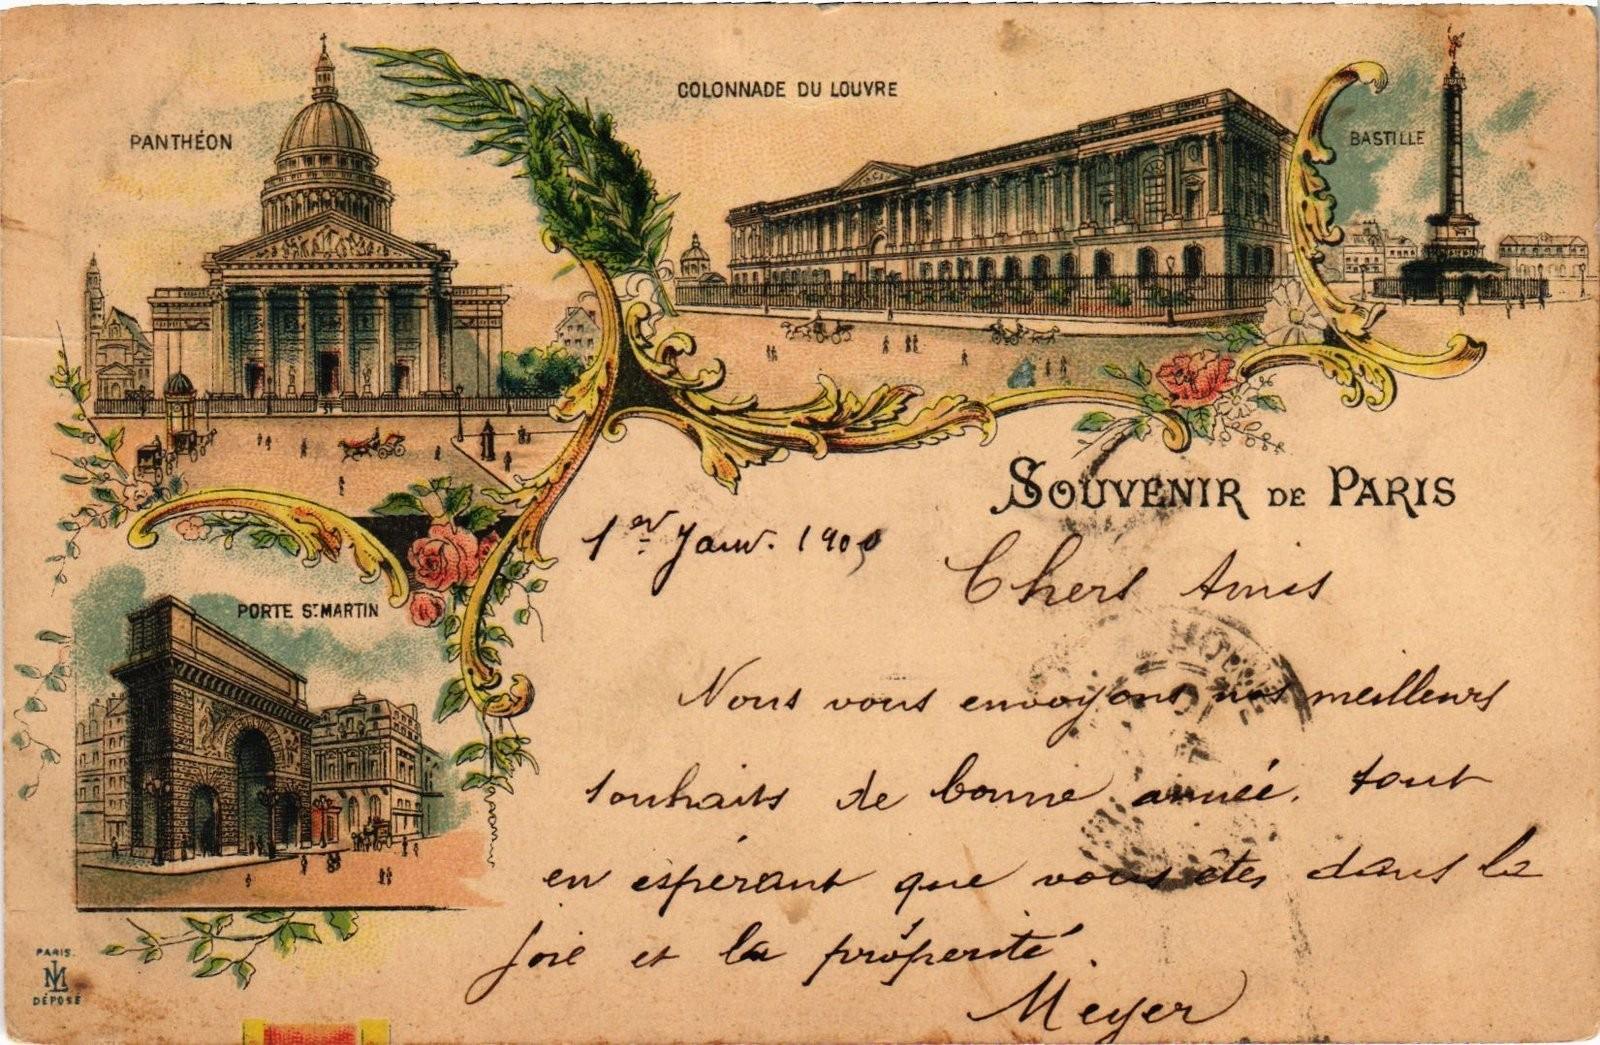 PANTHÉON
COLONNADE DU LOUVRE
BASTILLE
SOUVENIR DE PARIS
1er Janv. 1900
Chers Amis
PORTE ST. MARTIN
Nous vous envoyons nos meilleurs
souhaits de bonne année. tout
en espérant que vous êtes dans la
joie et la prospérité.
Meyer
PARIS.
ML
DÉPOSÉ